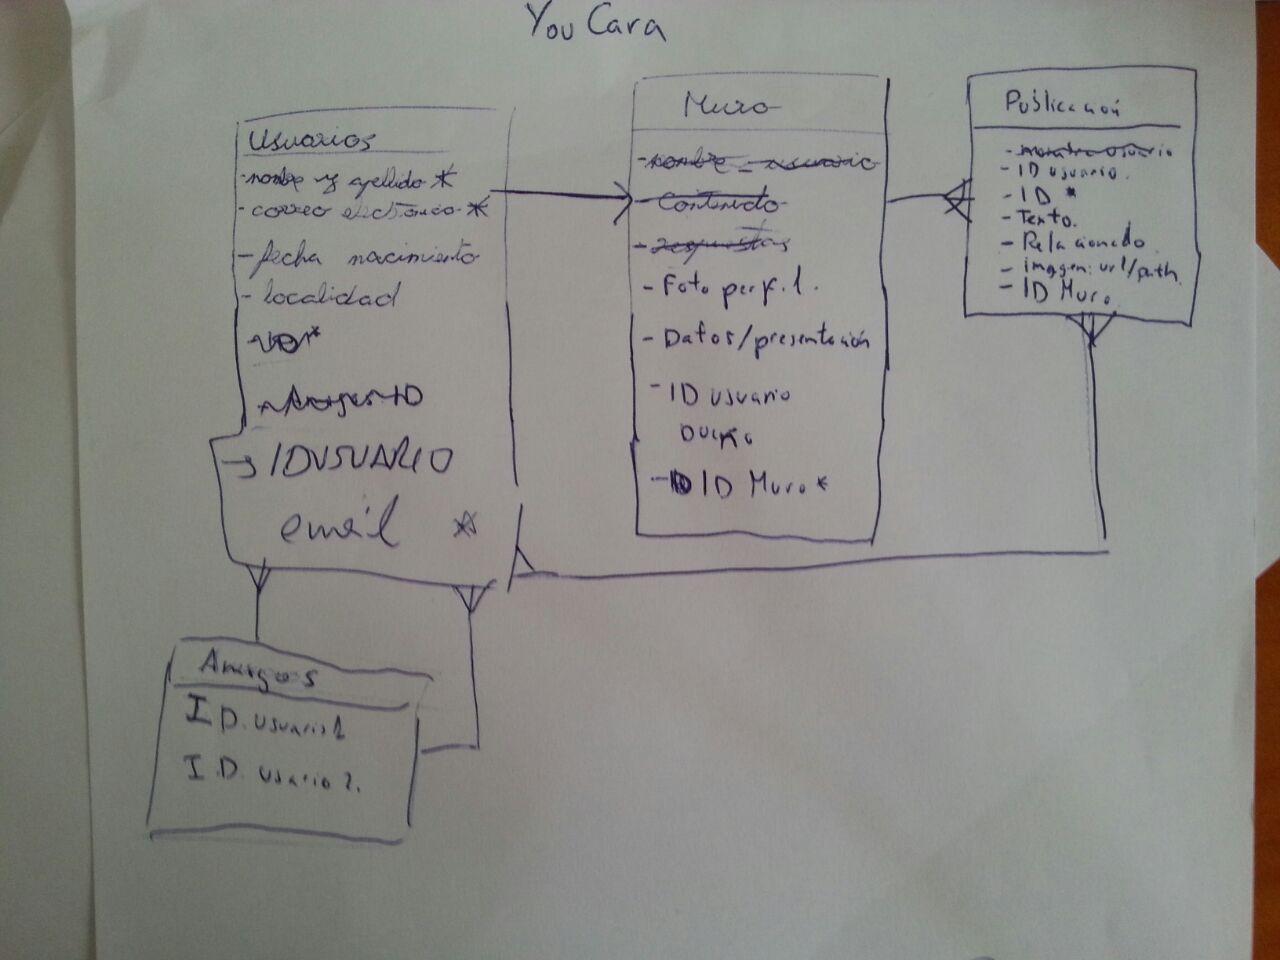 You Cara
Usuarios
- nombre y apellido *
- correo electronico *
- fecha nacimiento
- localidad
- ID *
- Amigos ID
→ IDUSUARIO
email *
Muro
- nombre_usuario
- Contenido
- respuestas
- Foto perfil.
- Datos/presentación
- ID usuario
Dueño
- ID Muro *
Publicación
- nombre usuario
- ID usuario.
- ID *
- Texto.
- Relacionado
- imagen: url/path.
- ID Muro.
Amigos
I.D. usuario1
I.D. usuario 2.